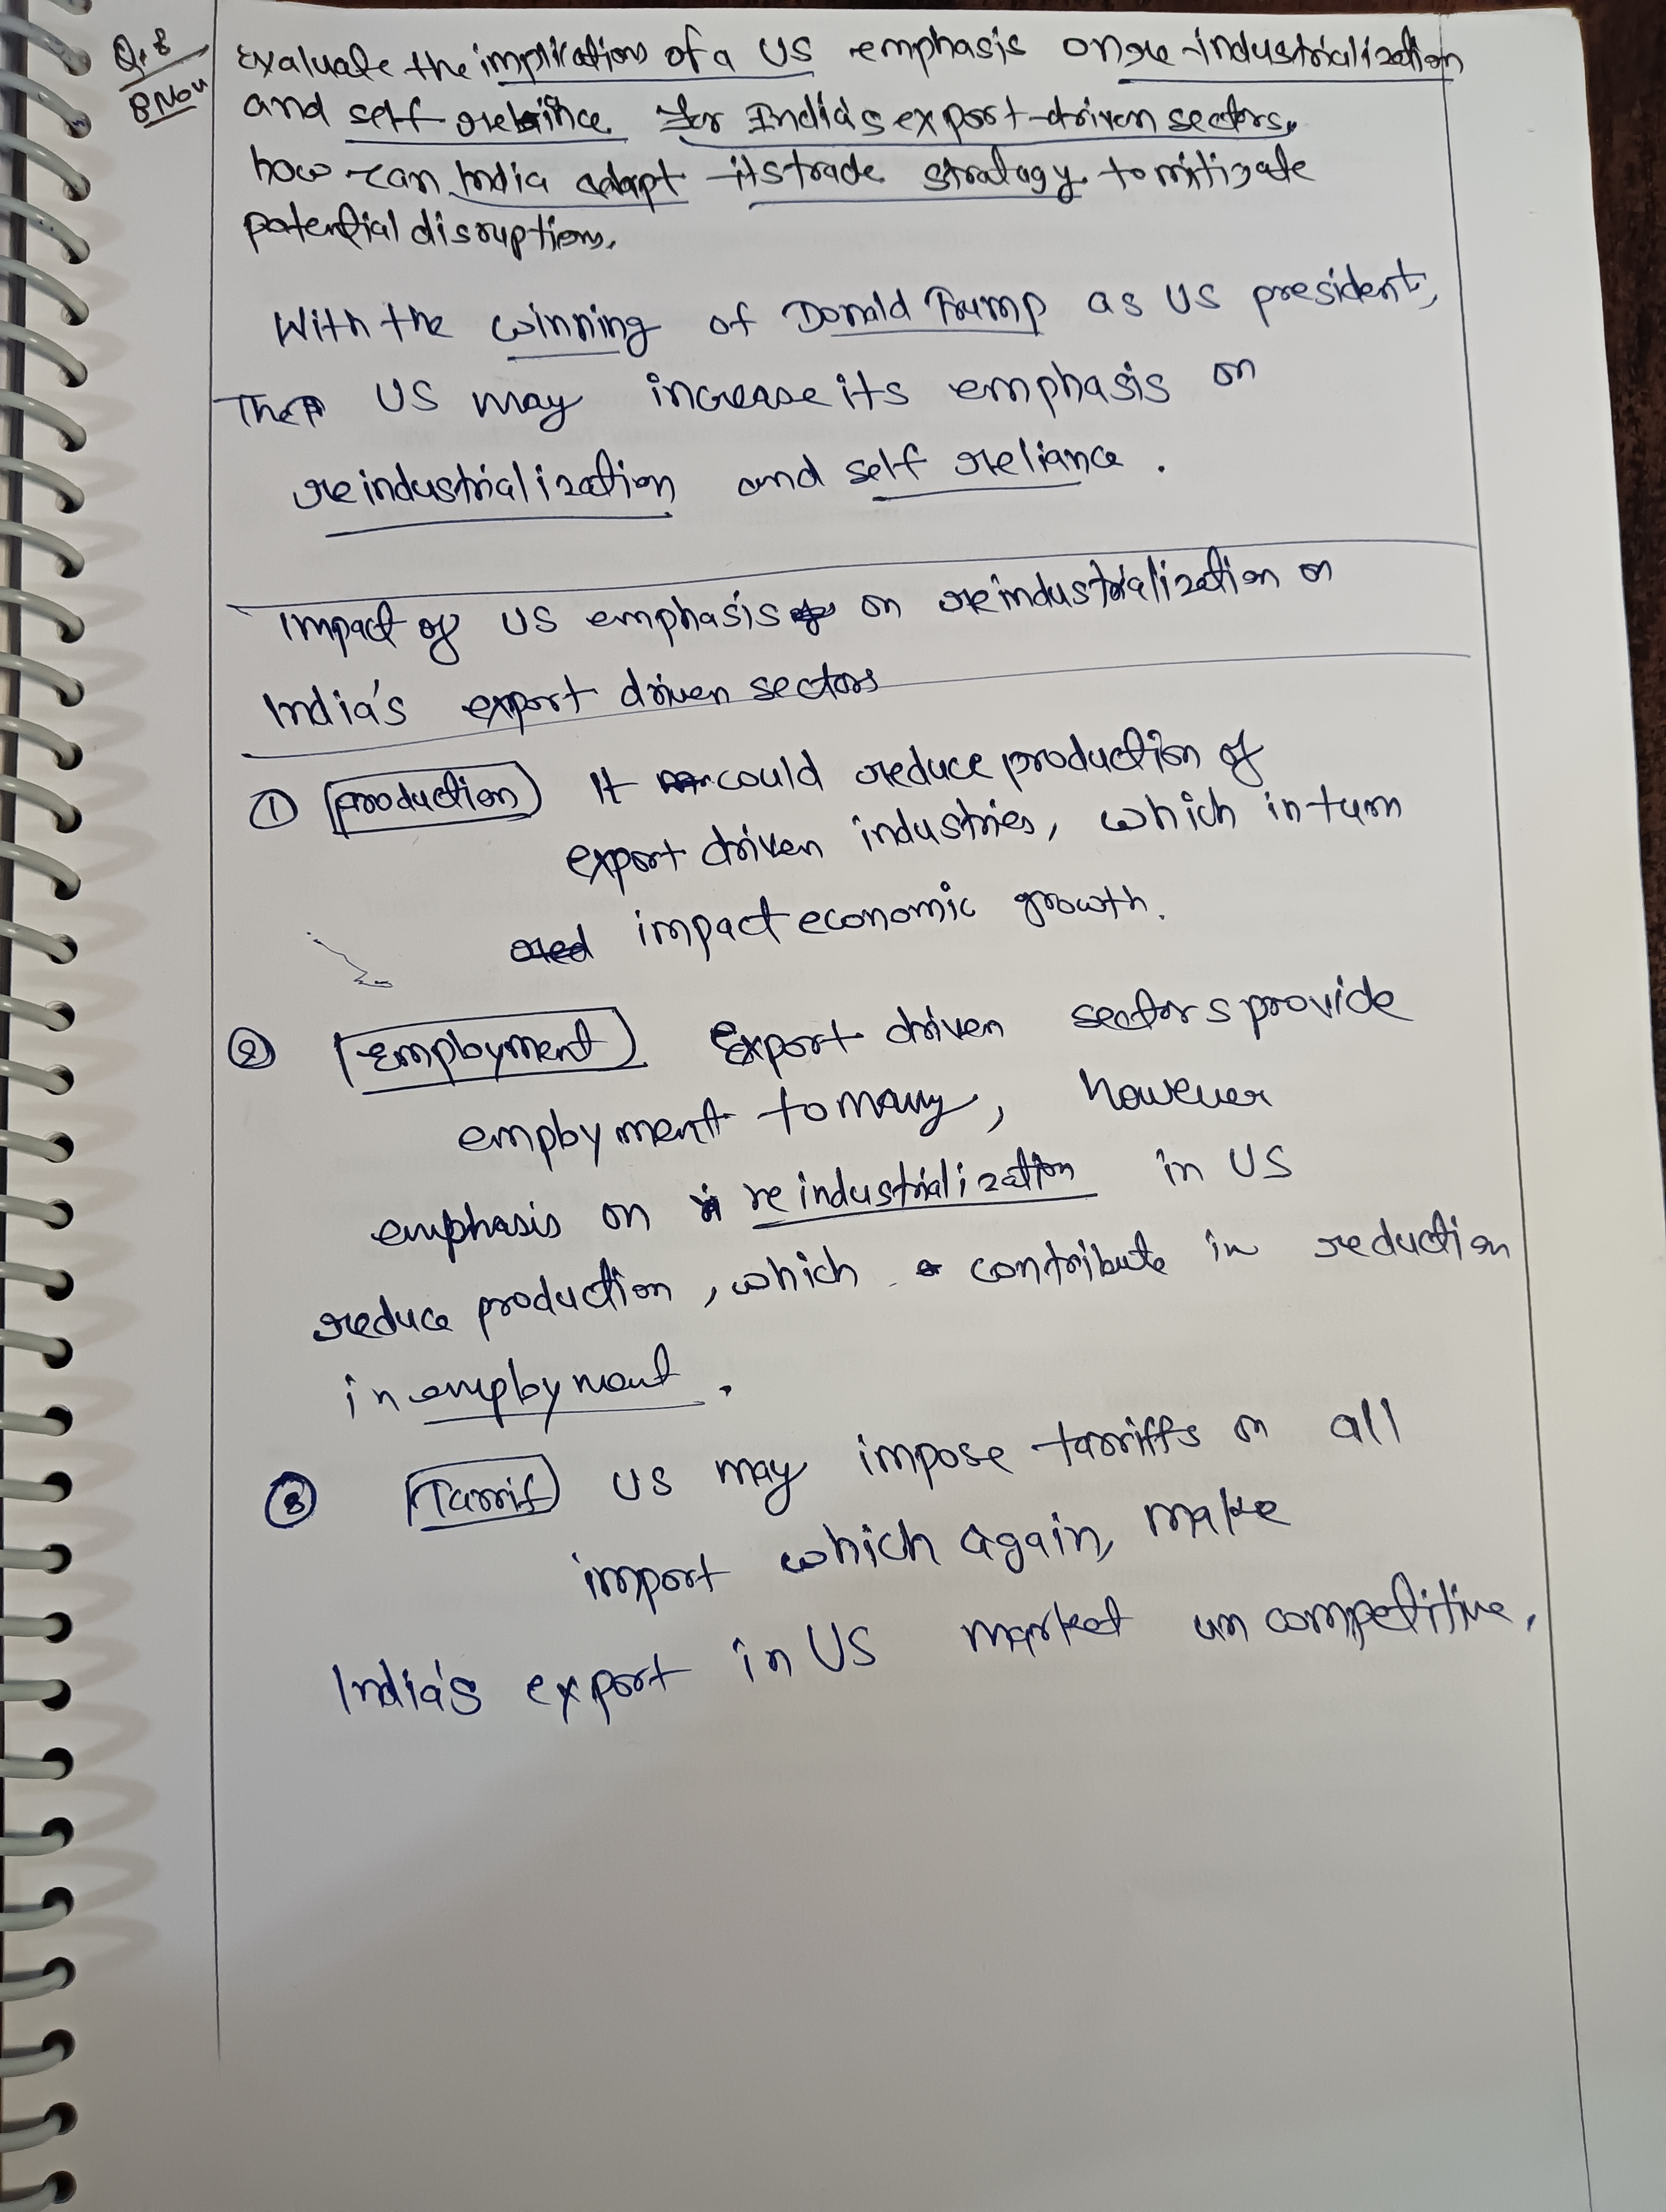 Q.8
8 Nov
Evaluate the implications of a US emphasis on re-industrialization
and self reliance for India's export-driven sectors,
how can India adapt its trade stratagy to mitigate
potential disruptions.
With the winning of Donald Trump as US president,
The US may increase its emphasis on
reindustrialization and self reliance.
Impact of US emphasis on reindustrialization on
India's export driven sectors
① Production It could reduce production of
export driven industries, which in turn
impact economic growth.
② Employment Export driven sectors provide
employment to many, however
emphasis on reindustrialization in US
reduce production, which contribute in reduction
in employment.
③ Tarrif US may impose tarriffs on all
import which again, make
India's export in US market uncompetitive.